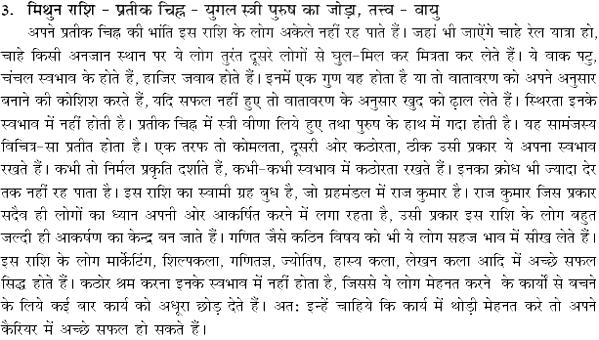 3. मिथुन राशि – प्रतीक चिह्न – युगल स्त्री पुरुष का जोड़ा, तत्त्व – वायु
अपने प्रतीक चिह्न की भांति इस राशि के लोग अकेले नहीं रह पाते हैं। जहां भी जाऐंगे चाहे रेल यात्रा हो,
चाहे किसी अनजान स्थान पर ये लोग तुरंत दूसरे लोगों से घुल-मिल कर मित्रता कर लेते हैं। ये वाक पटु,
चंचल स्वभाव के होते हैं, हाजिर जवाब होते हैं। इनमें एक गुण यह होता है या तो वातावरण को अपने अनुसार
बनाने की कोशिश करते हैं, यदि सफल नहीं हुए तो वातावरण के अनुसार खुद को ढ़ाल लेते हैं। स्थिरता इनके
स्वभाव में नहीं होती है। प्रतीक चिह्न में स्त्री वीणा लिये हुए तथा पुरुष के हाथ में गदा होती है। यह सामंजस्य
विचित्र-सा प्रतीत होता है। एक तरफ तो कोमलता, दूसरी ओर कठोरता, ठीक उसी प्रकार ये अपना स्वभाव
रखते हैं। कभी तो निर्मल प्रकृति दर्शाते हैं, कभी-कभी स्वभाव में कठोरता रखते हैं। इनका क्रोध भी ज्यादा देर
तक नहीं रह पाता है। इस राशि का स्वामी ग्रह बुध है, जो ग्रहमंडल में राज कुमार है। राज कुमार जिस प्रकार
सदैव ही लोगों का ध्यान अपनी ओर आकर्षित करने में लगा रहता है, उसी प्रकार इस राशि के लोग बहुत
जल्दी ही आकर्षण का केन्द्र बन जाते हैं। गणित जैसे कठिन विषय को भी ये लोग सहज भाव में सीख लेते हैं।
इस राशि के लोग मार्केटिंग, शिल्पकला, गणितज्ञ, ज्योतिष, हास्य कला, लेखन कला आदि में अच्छे सफल
सिद्ध होते हैं। कठोर श्रम करना इनके स्वभाव में नहीं होता है, जिससे ये लोग मेहनत करने के कार्यों से बचने
के लिये कई बार कार्य को अधूरा छोड़ देते हैं। अत: इन्हें चाहिये कि कार्य में थोड़ी मेहनत करे तो अपने
कैरियर में अच्छे सफल हो सकते हैं।